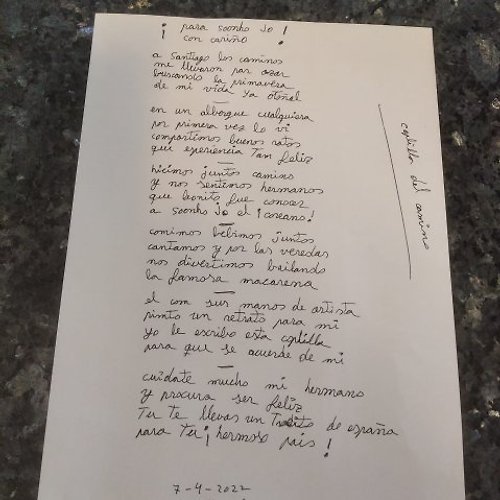 ¡ para soonho Jo !
con cariño
a Santiago los caminos
me llevaron por azar
buscando la primavera
de mi vida ya otoñal
en un albergue cualquiera
por primera vez lo vi
compartimos buenos ratos
que experiencia Tan feliz
hicimos juntos camino
y nos sentimos hermanos
que bonito fue conocer
a soonho Jo el ¡coreano!
comimos bebimos juntos
cantamos y por las veredas
nos divertimos bailando
la famosa macarena
el con sus manos de artista
pinto un retrato para mi
yo le escribo esta coplilla
para que se acuerde de mi
cuidate mucho mi hermano
y procura ser feliz
Tu te llevas un Trocito de españa
para Tu ¡ hermoso pais !
7-4-2022
coplilla del camino